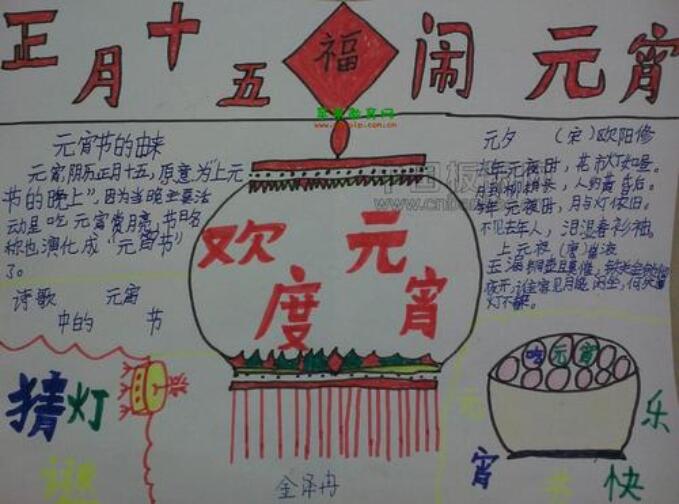 正月十五 福 闹元宵
元宵节的由来
元宵阴历正月十五,原意为"上元
节的晚上",因为当晚主要活
动是吃元宵赏月亮,节日名
称也演化成"元宵节"
了。
诗歌 元宵
中的 节
欢度元宵
元夕 (宋)欧阳修
去年元夜时,花市灯如昼。
月到柳梢头,人约黄昏后。
今年元夜时,月与灯依旧。
不见去年人,泪湿春衫袖。
上元夜(唐)
玉漏铜壶且莫催,
夜开,谁家见月能闲坐,何
灯不
猜灯
谜
吃元宵
元宵快乐
金泽冉